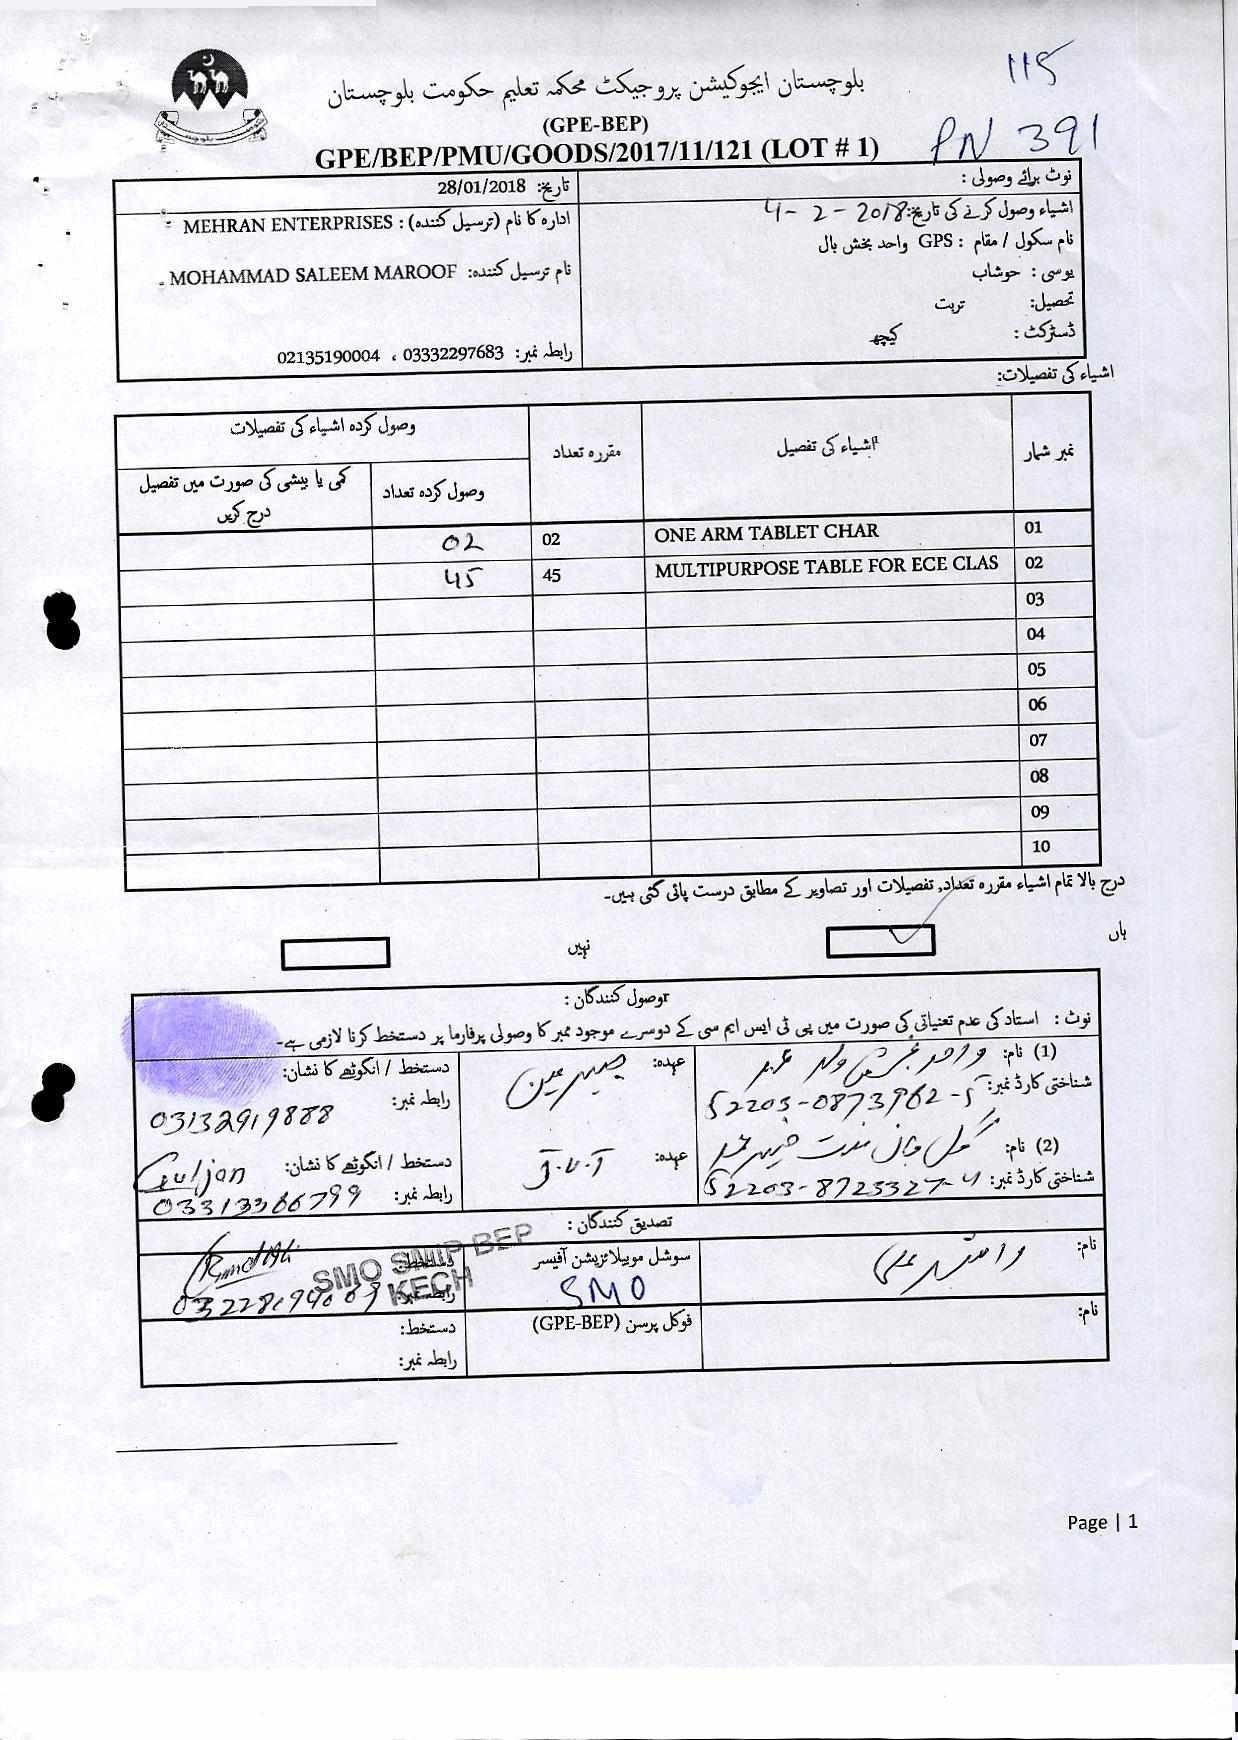 115
بلوچستان ایجوکیشن پروجیکٹ محکمہ تعلیم حکومت بلوچستان
(GPE-BEP)
PN 391
GPE/BEP/PMU/GOODS/2017/11/121 (LOT # 1)
نوٹ برائے وصولی :
تاریخ: 28/01/2018
اشیاء وصول کرنے کی تاریخ: 4-2-2018
ادارہ کا نام (ترسیل کنندہ) : MEHRAN ENTERPRISES
نام سکول / مقام : GPS واحد بخش بال
یوسی : حوشاب
نام ترسیل کنندہ: MOHAMMAD SALEEM MAROOF
تحصیل: تربت
ڈسٹرکٹ : کیچ
رابطہ نمبر: 03332297683 ، 02135190004
اشیاء کی تفصیلات:
نمبر شمار اشیاء کی تفصیل مقررہ تعداد وصول کردہ اشیاء کی تفصیلات
وصول کردہ تعداد کمی یا بیشی کی صورت میں تفصیل درج کریں
01 ONE ARM TABLET CHAR 02 02
02 MULTIPURPOSE TABLE FOR ECE CLAS 45 45
03
04
05
06
07
08
09
10
درج بالا تمام اشیاء مقررہ تعداد, تفصیلات اور تصاویر کے مطابق درست پائی گئی ہیں۔
ہاں نہیں
وصول کنندگان :
نوٹ : استاد کی عدم تعیناتی کی صورت میں پی ٹی ایس ایم سی کے دوسرے موجود ممبر کا وصولی پرفارما پر دستخط کرنا لازمی ہے۔
(1) نام: واحد بخش ولد عہدہ: چیئرمین دستخط / انگوٹھے کا نشان:
شناختی کارڈ نمبر: 52203-0873962-5 رابطہ نمبر: 03132919888
(2) نام: گل جان عہدہ: دستخط / انگوٹھے کا نشان: Guljan
شناختی کارڈ نمبر: 52203-8723327-4 رابطہ نمبر: 03313366799
تصدیق کنندگان :
نام: سوشل موبیلائزیشن آفیسر دستخط:
SMO رابطہ نمبر:
SMO SMIP BEP
KECH
نام: فوکل پرسن (GPE-BEP) دستخط:
رابطہ نمبر:
Page | 1